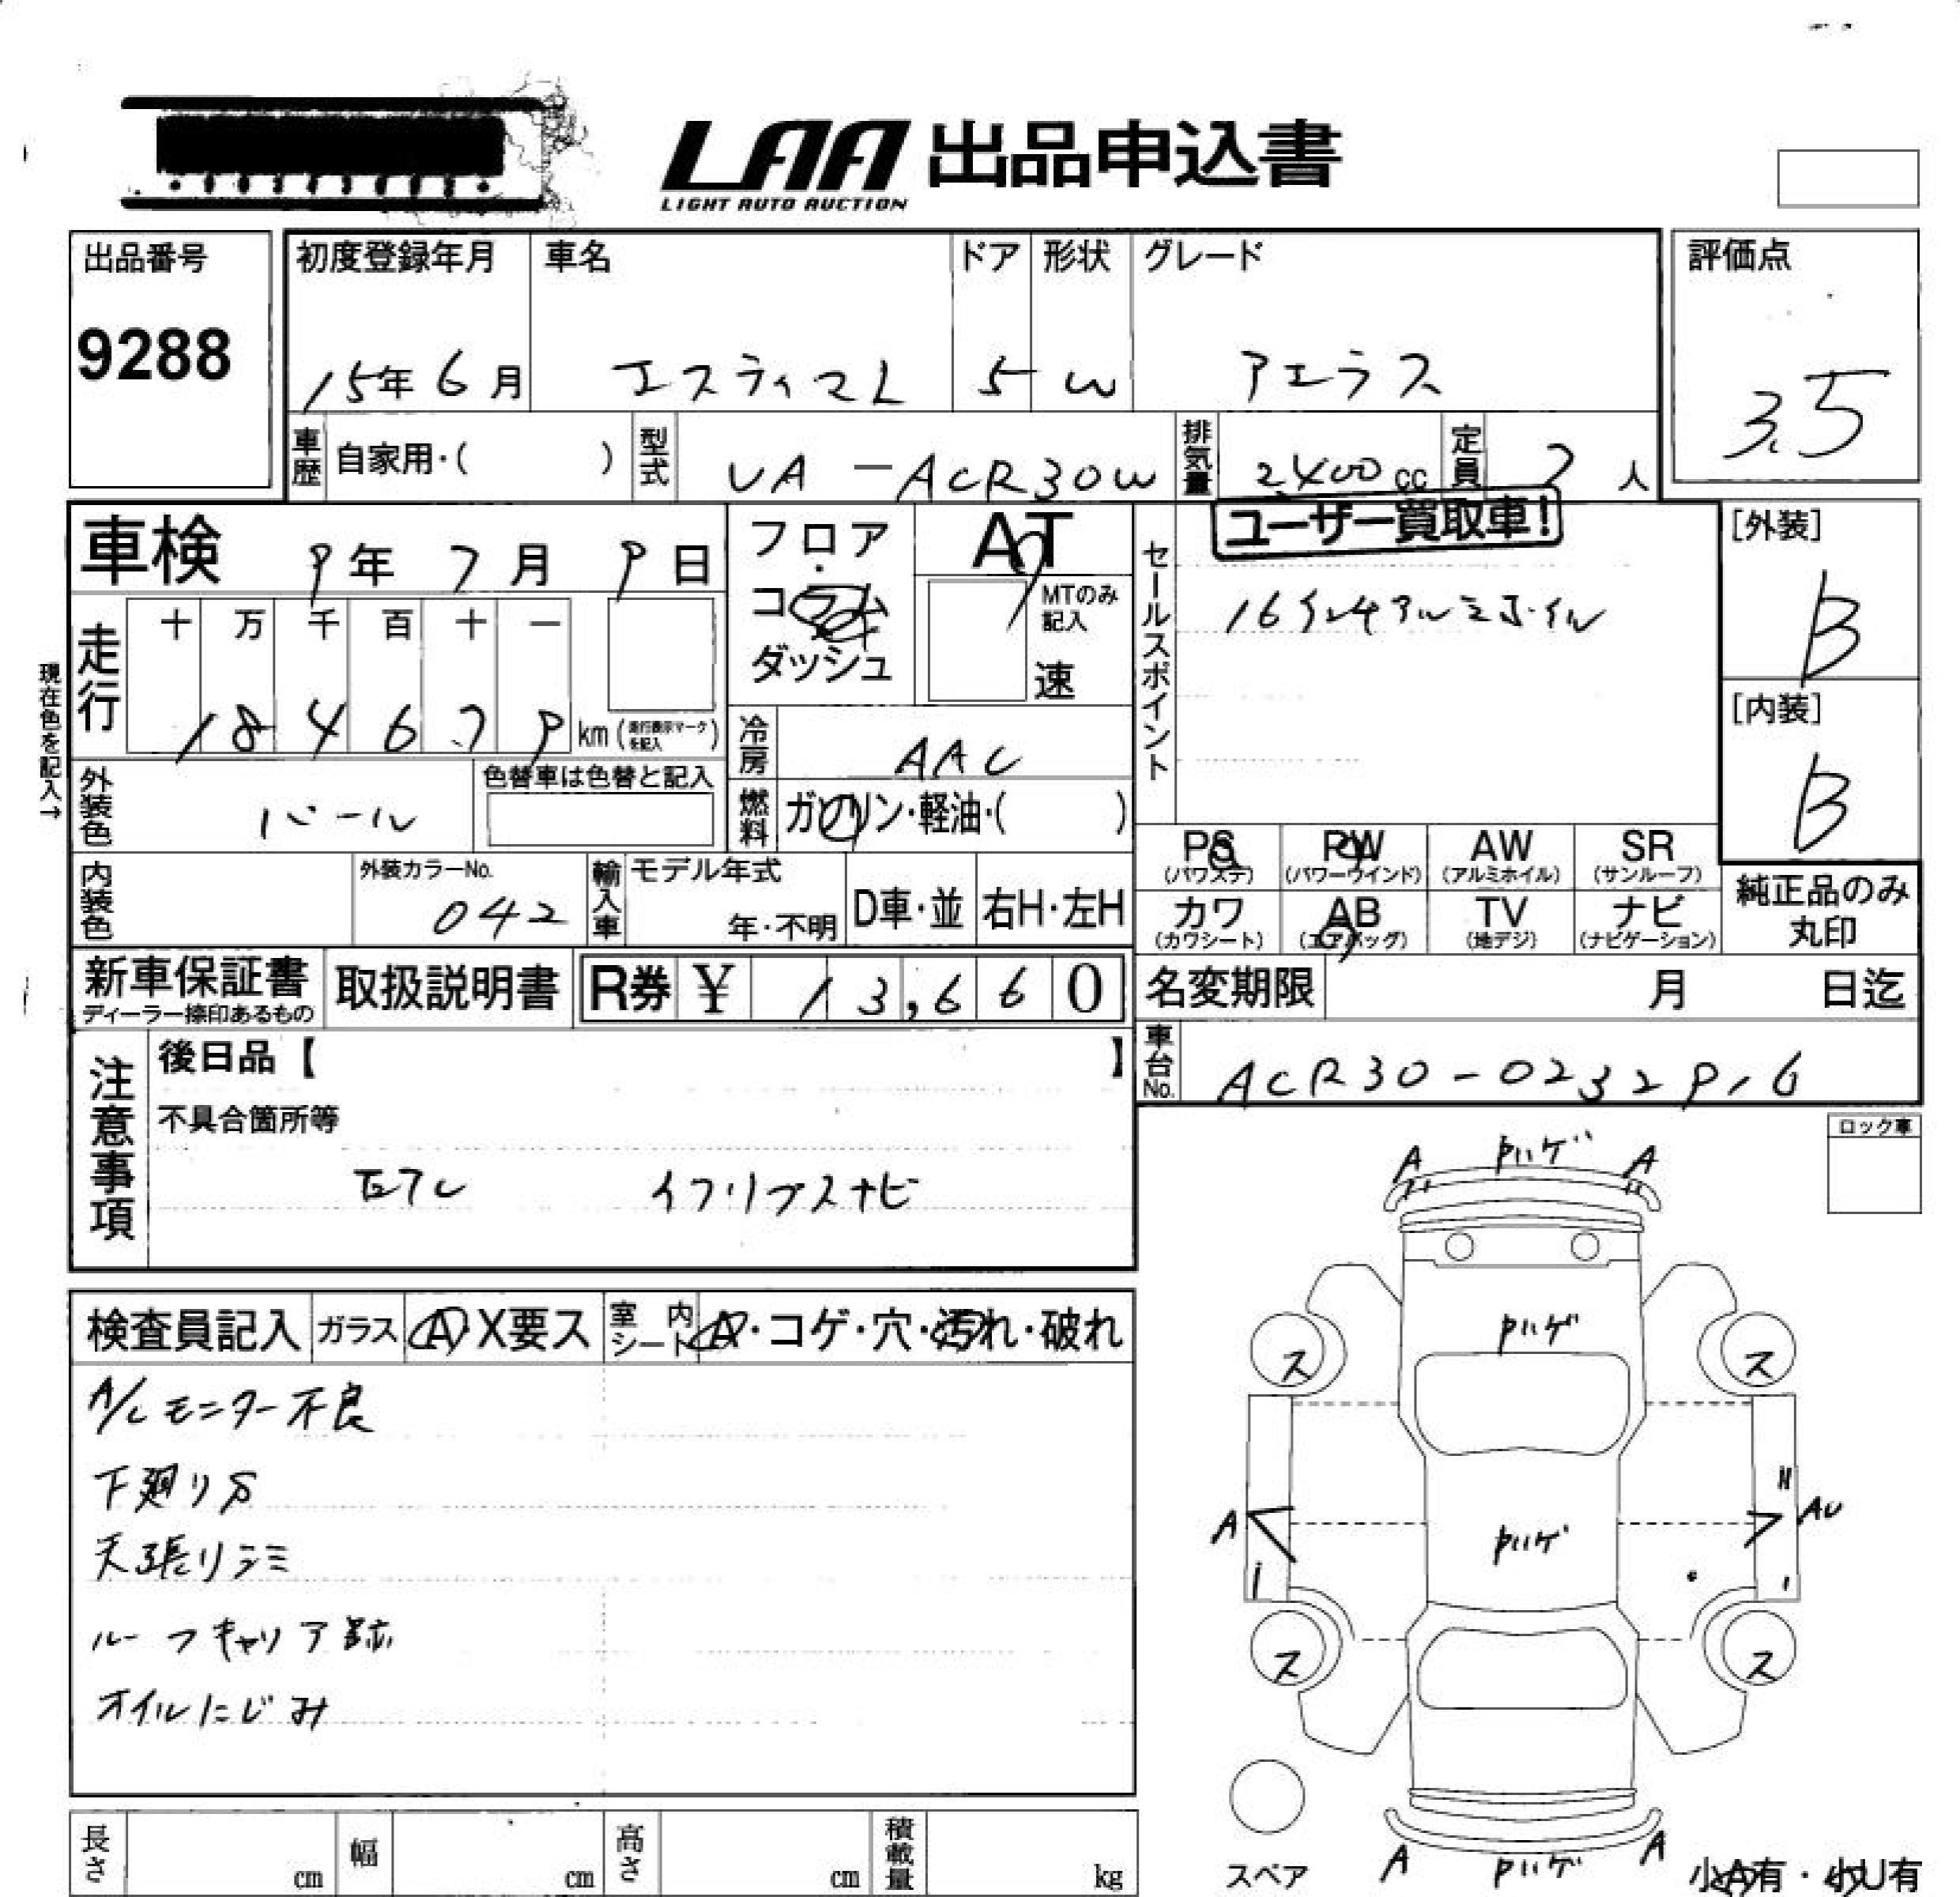 LAA 出品申込書
LIGHT AUTO AUCTION
出品番号
9288
初度登録年月
15年6月
車名
エスティマL
ドア
5
形状
W
グレード
アエラス
評価点
3.5
車歴
自家用・( )
型式
UA-ACR30W
排気量
2400cc
定員
7人
車検
9年7月9日
フロア
コラム
ダッシュ
AT
MTのみ記入
速
セールスポイント
ユーザー買取車!
16インチアルミホイル
[外装]
B
[内装]
B
現在色を記入→
走行
十 万 千 百 十 一
184679 km (走行表示マークを記入)
冷房
AAC
外装色
パール
色替車は色替と記入
燃料
ガソリン・軽油・( )
内装色
外装カラーNo.
042
輸入車
モデル年式
年・不明
D車・並
右H・左H
PS
(パワステ)
PW
(パワーウインド)
AW
(アルミホイル)
SR
(サンルーフ)
カワ
(カワシート)
AB
(エアバッグ)
TV
(地デジ)
ナビ
(ナビゲーション)
純正品のみ
丸印
新車保証書
ディーラー捺印あるもの
取扱説明書
R券 ¥ 13,660
名変期限
月 日迄
車台No.
ACR30-0232916
注意事項
後日品【 】
不具合箇所等
イクリプスナビ
ロック車
検査員記入
ガラス
A・X要ス
室内シート
A・コゲ・穴・汚れ・破れ
A/Cモニター不良
下廻りS
天張りシミ
ルーフキャリア跡
オイルにじみ
A ハゲ A
ハゲ
ス ス
A ハゲ AU
ス ス
A ハゲ A
スペア
小A有・小U有
長さ cm
幅 cm
高さ cm
積載量 kg